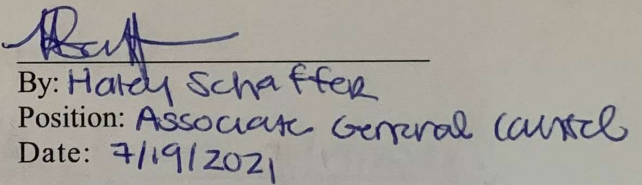 By: Haley Schaffer
Position: Associate General Counsel
Date: 7/19/2021